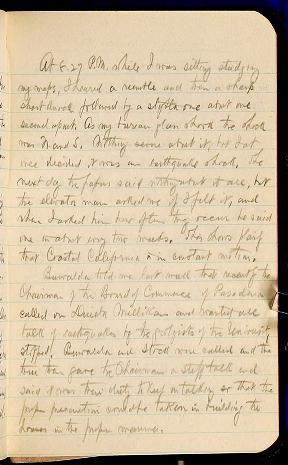 At 8.27 P.M. while I was sitting studying
my maps, I heard a rumble and then a sharp
short shock followed by a slighter one about one
second apart. As my bureau glass shook the shock
was N. and S. Nothing some about it, but I at
once decided it was an earthquake shock. The
next day the papers said nothing about it at all, but
the elevator man asked me if I felt it, and
when I asked him how often they occur he said
one in about every two weeks. This shows plainly
that Coastal California is in constant motion.
Buwalda told me last week that recently the
Chairman of the Board of Commerce of Pasadena
called on Director Millikan and wanted all
talk of earthquakes by the geologists of the University
stopped. Buwalda and Stock were called and the
three then gave the Chairman a stiff talk and
said it was their duty to keep on talking so that the
proper precaution could be taken in building the
houses in the proper manner.